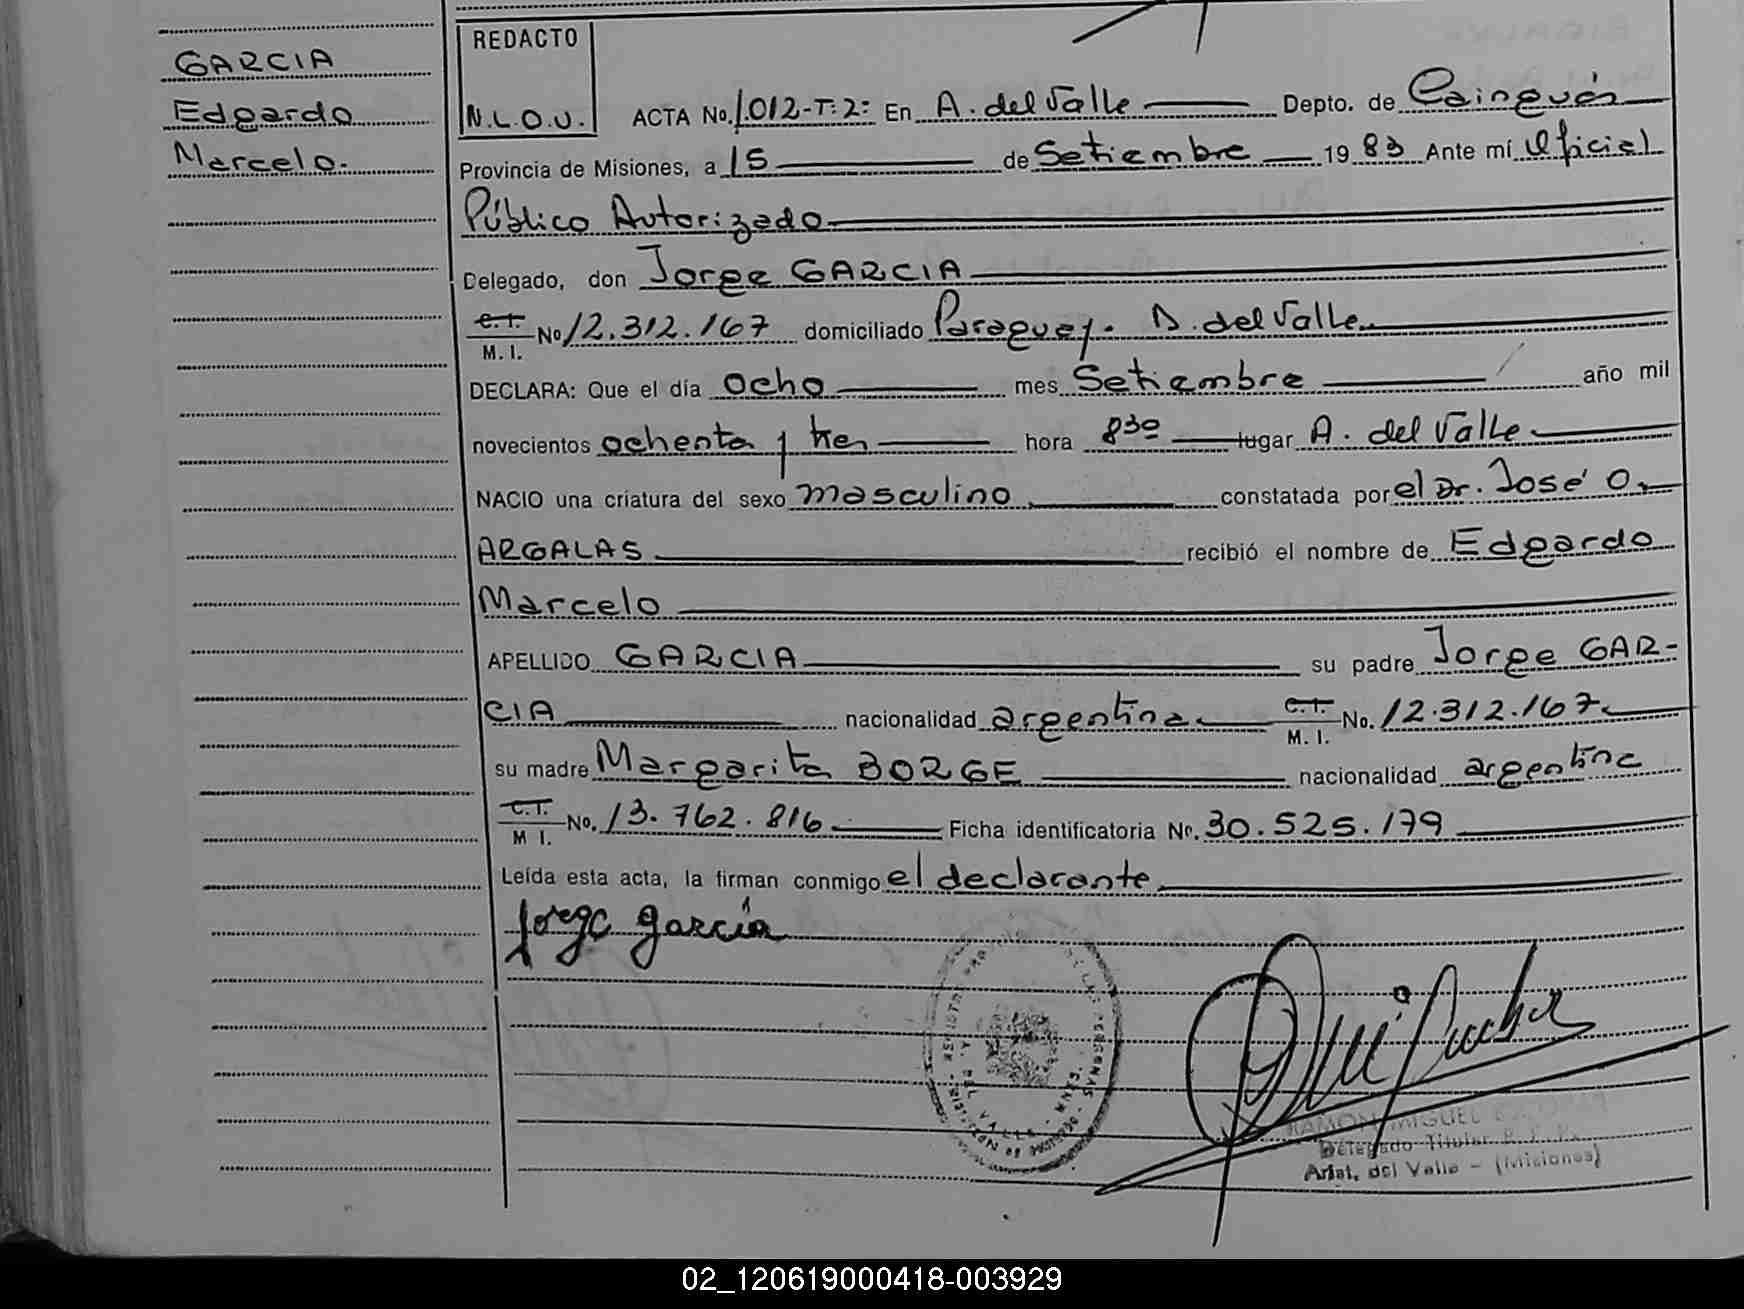 GARCIA
Edgardo
Marcelo.
REDACTO
N.L.O.U.
ACTA No. 1.012-T:2: En A. del Valle Depto. de Cainguás
Provincia de Misiones, a 15 de Setiembre 1983 Ante mí Oficial
Público Autorizado
Delegado, don Jorge GARCIA
C.I.
M. I. No 12.312.167 domiciliado Paraguay. A. del Valle.
DECLARA: Que el día ocho mes Setiembre año mil
novecientos ochenta y tres hora 830 lugar A. del Valle
NACIO una criatura del sexo masculino constatada por el Dr. José O.
ARGALAS recibió el nombre de Edgardo
Marcelo
APELLIDO GARCIA su padre Jorge GAR-
CIA nacionalidad argentina C.I. M. I. No. 12.312.167
su madre Margarita BORGE nacionalidad argentina
C.I. M I. No. 13.762.816 Ficha identificatoria No. 30.525.179
Leída esta acta, la firman conmigo el declarante
Jorge García
RAMON MIGUEL
Delegado Titular R. P.
Arist. del Valle - (Misiones)
02_120619000418-003929